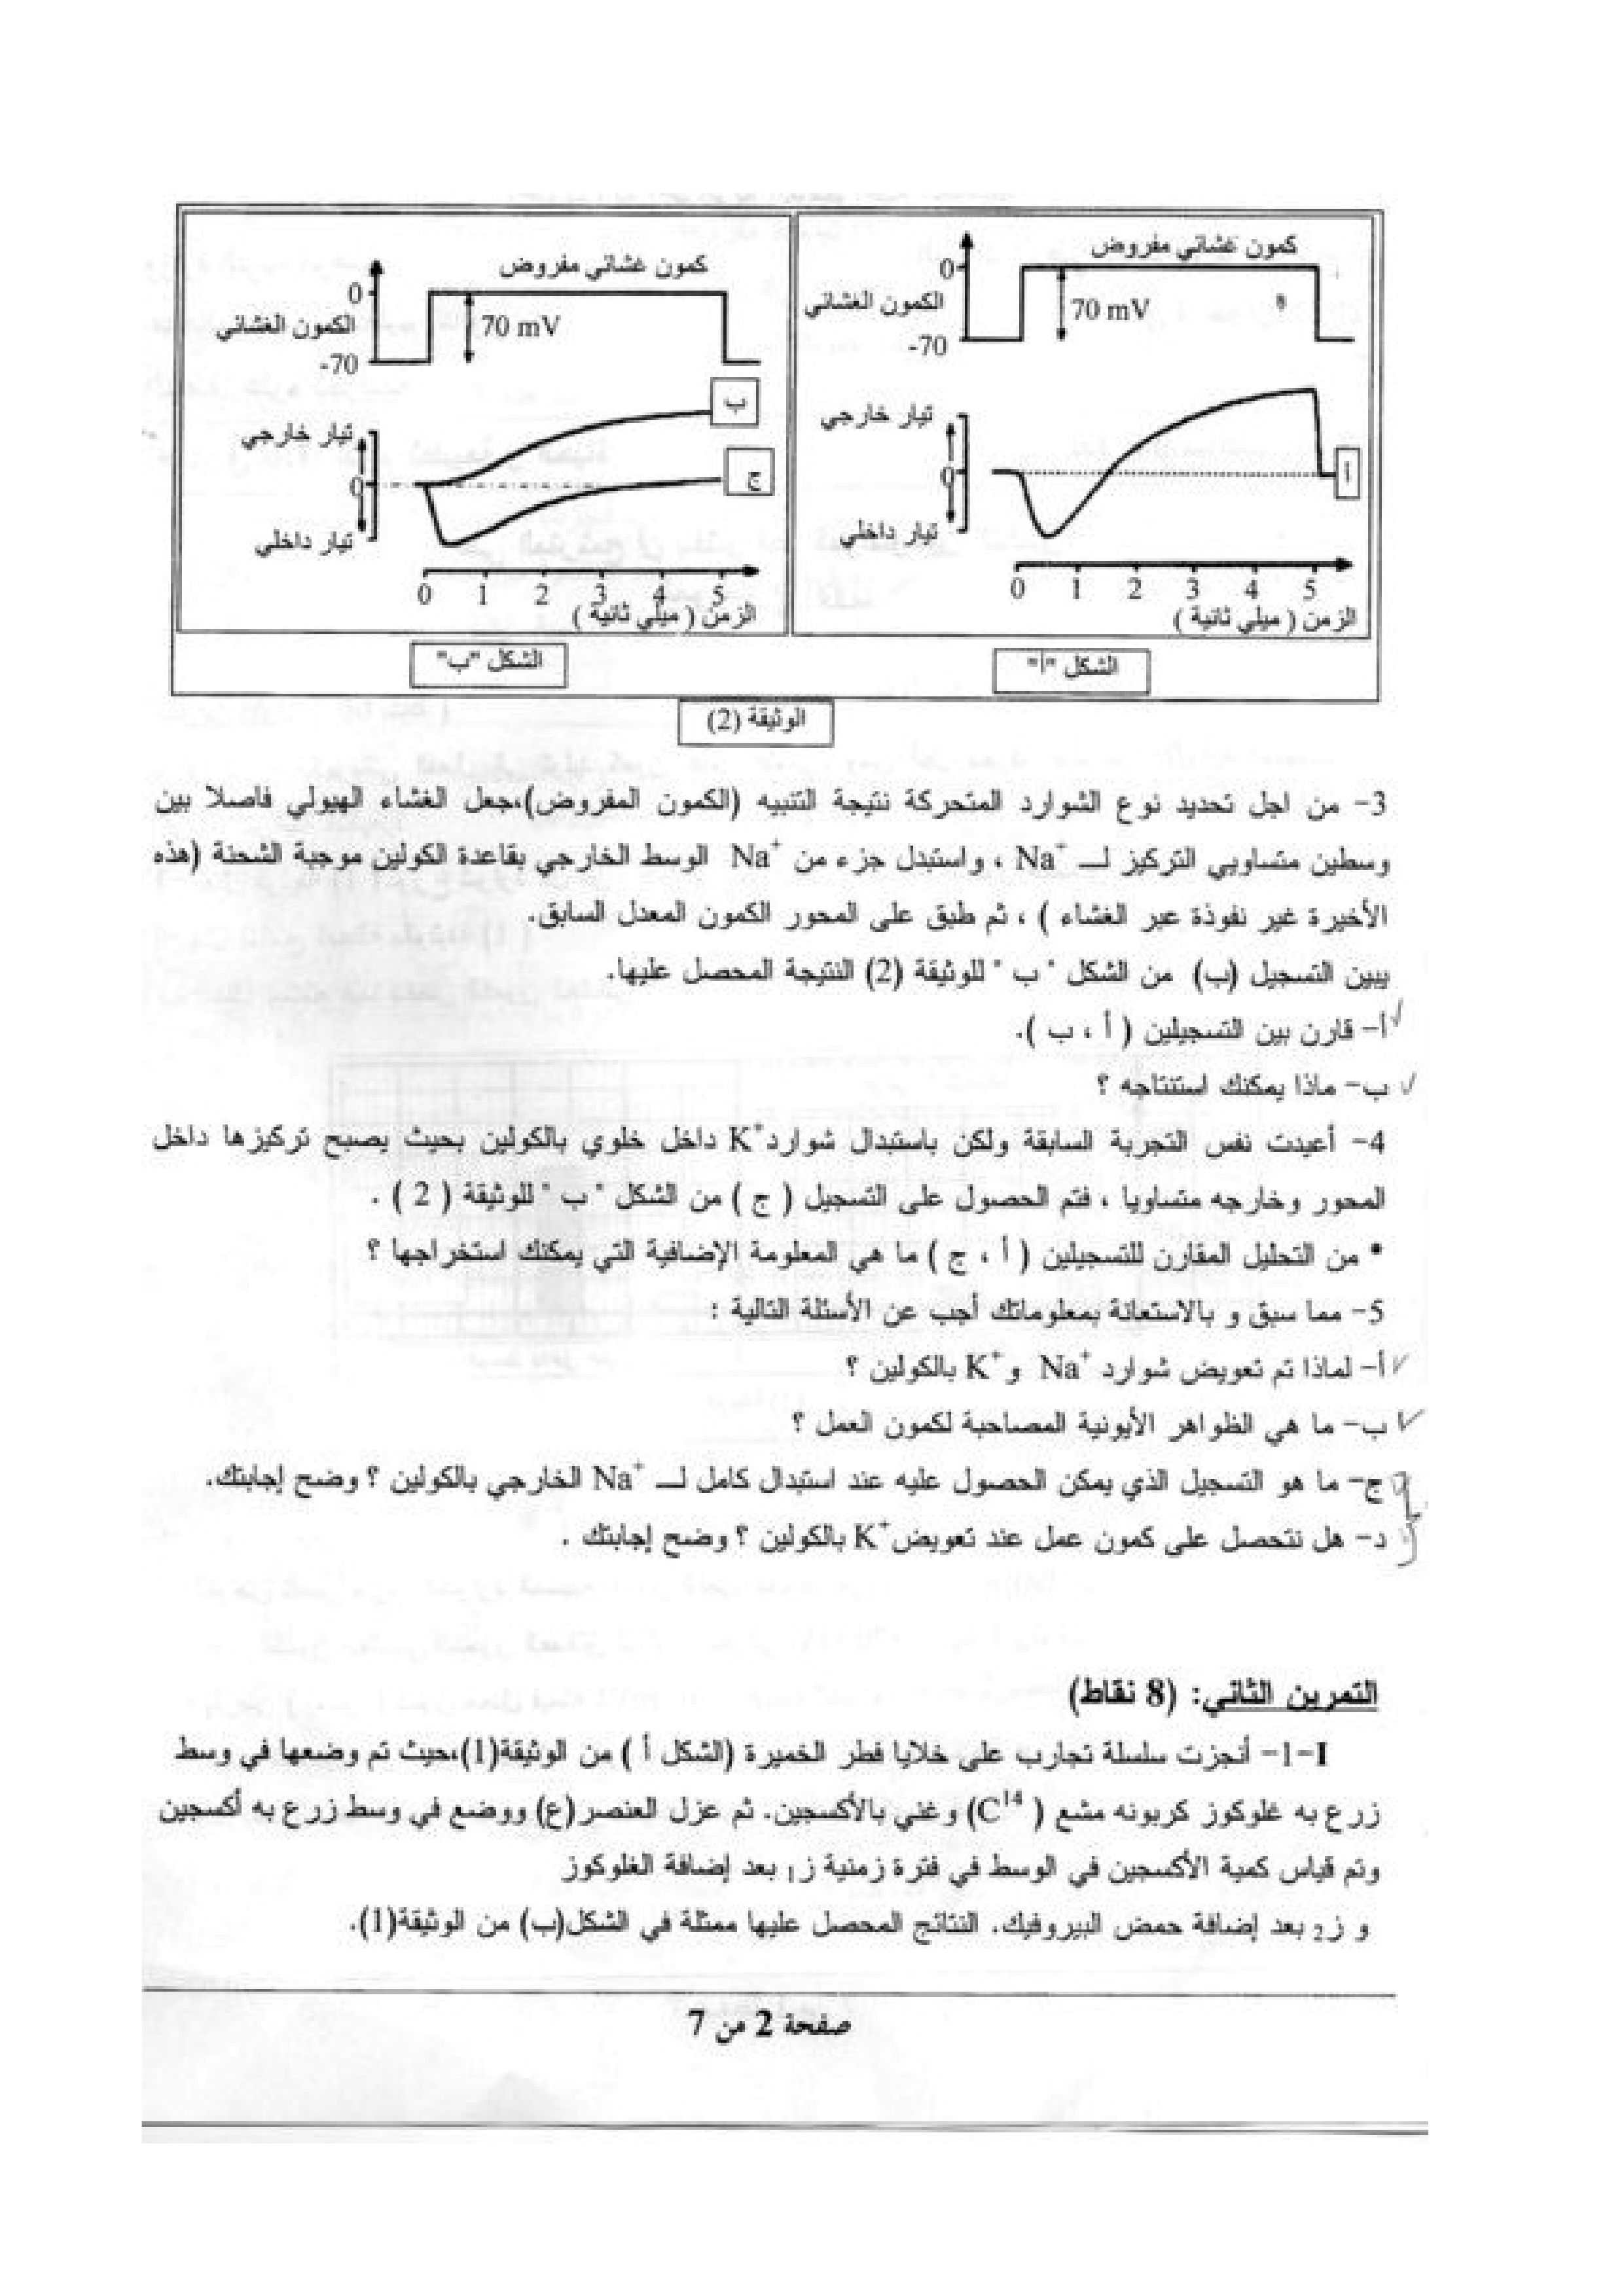 كمون غشائي مفروض
0
الكمون الغشائي
70 mV
-70
تيار خارجي
0
تيار داخلي
أ
0 1 2 3 4 5
الزمن ( ميلي ثانية )
الشكل "أ"
كمون غشائي مفروض
0
الكمون الغشائي
70 mV
-70
ب
تيار خارجي
ج
0
تيار داخلي
0 1 2 3 4 5
الزمن ( ميلي ثانية )
الشكل "ب"
الوثيقة (2)
3- من اجل تحديد نوع الشوارد المتحركة نتيجة التنبيه (الكمون المفروض)،جعل الغشاء الهيولي فاصلا بين
وسطين متساويي التركيز لــ Na⁺ ، واستبدل جزء من Na⁺ الوسط الخارجي بقاعدة الكولين موجبة الشحنة (هذه
الأخيرة غير نفوذة عبر الغشاء ) ، ثم طبق على المحور الكمون المعدل السابق.
يبين التسجيل (ب) من الشكل " ب " للوثيقة (2) النتيجة المحصل عليها.
أ- قارن بين التسجيلين ( أ ، ب ).
ب- ماذا يمكنك استنتاجه ؟
4- أعيدت نفس التجربة السابقة ولكن باستبدال شوارد K⁺ داخل خلوي بالكولين بحيث يصبح تركيزها داخل
المحور وخارجه متساويا ، فتم الحصول على التسجيل ( ج ) من الشكل " ب " للوثيقة ( 2 ) .
• من التحليل المقارن للتسجيلين ( أ ، ج ) ما هي المعلومة الإضافية التي يمكنك استخراجها ؟
5- مما سبق و بالاستعانة بمعلوماتك أجب عن الأسئلة التالية :
أ- لماذا تم تعويض شوارد Na⁺ و K⁺ بالكولين ؟
ب- ما هي الظواهر الأيونية المصاحبة لكمون العمل ؟
ج- ما هو التسجيل الذي يمكن الحصول عليه عند استبدال كامل لــ Na⁺ الخارجي بالكولين ؟ وضح إجابتك.
د- هل نتحصل على كمون عمل عند تعويض K⁺ بالكولين ؟ وضح إجابتك .
التمرين الثاني: (8 نقاط)
I-1- أنجزت سلسلة تجارب على خلايا فطر الخميرة (الشكل أ ) من الوثيقة(1)،حيث تم وضعها في وسط
زرع به غلوكوز كربونه مشع ( C¹⁴) وغني بالأكسجين. ثم عزل العنصر(ع) ووضع في وسط زرع به أكسجين
وتم قياس كمية الأكسجين في الوسط في فترة زمنية ز₁ بعد إضافة الغلوكوز
و ز₂ بعد إضافة حمض البيروفيك. النتائج المحصل عليها ممثلة في الشكل(ب) من الوثيقة(1).
صفحة 2 من 7